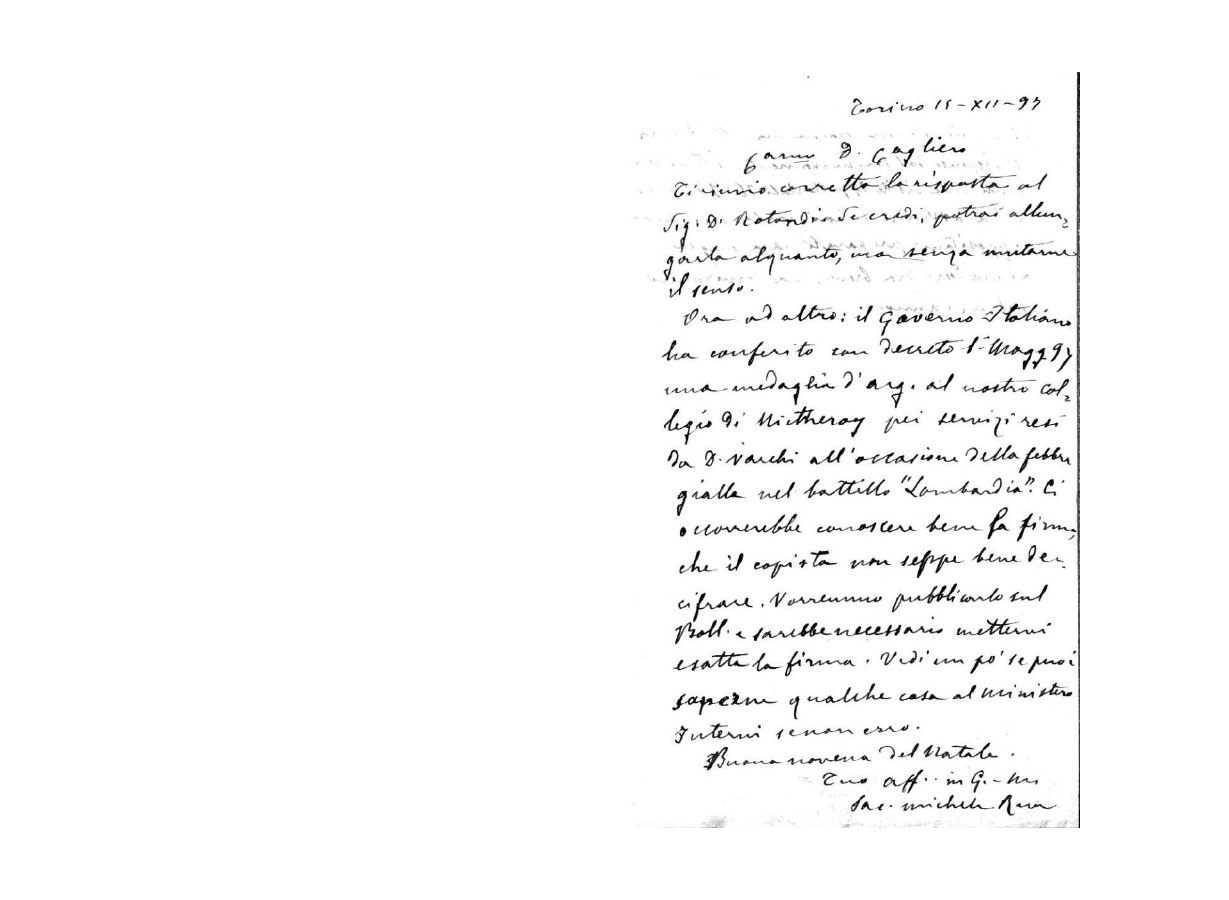 Torino 15-XII-97
Carmo D. Cagliero
Ti rinvio corretta la risposta al
Sig. D. Rotondi. Se credi, potrai allun=
garla alquanto, ma senza mutarne
il senso.
Ora ad altro: il Governo Italiano
ha conferito con decreto 1° Magg 97
una medaglia d'arg. al nostro col=
legio di Nictheroy pei servizi resi
da D. Varchi all'occasione della febbre
gialla nel battello "Lombardia". Ci
occorrerebbe conoscere bene la firma,
che il copista non seppe bene de=
cifrare. Vorremmo pubblicarlo sul
Boll. e sarebbe necessario mettervi
esatta la firma. Vedi un po' se puoi
saperne qualche cosa al ministero
Interni se non erro.
Buona novena del Natale.
Tuo aff. in G. M.
Sac. Michele Rua